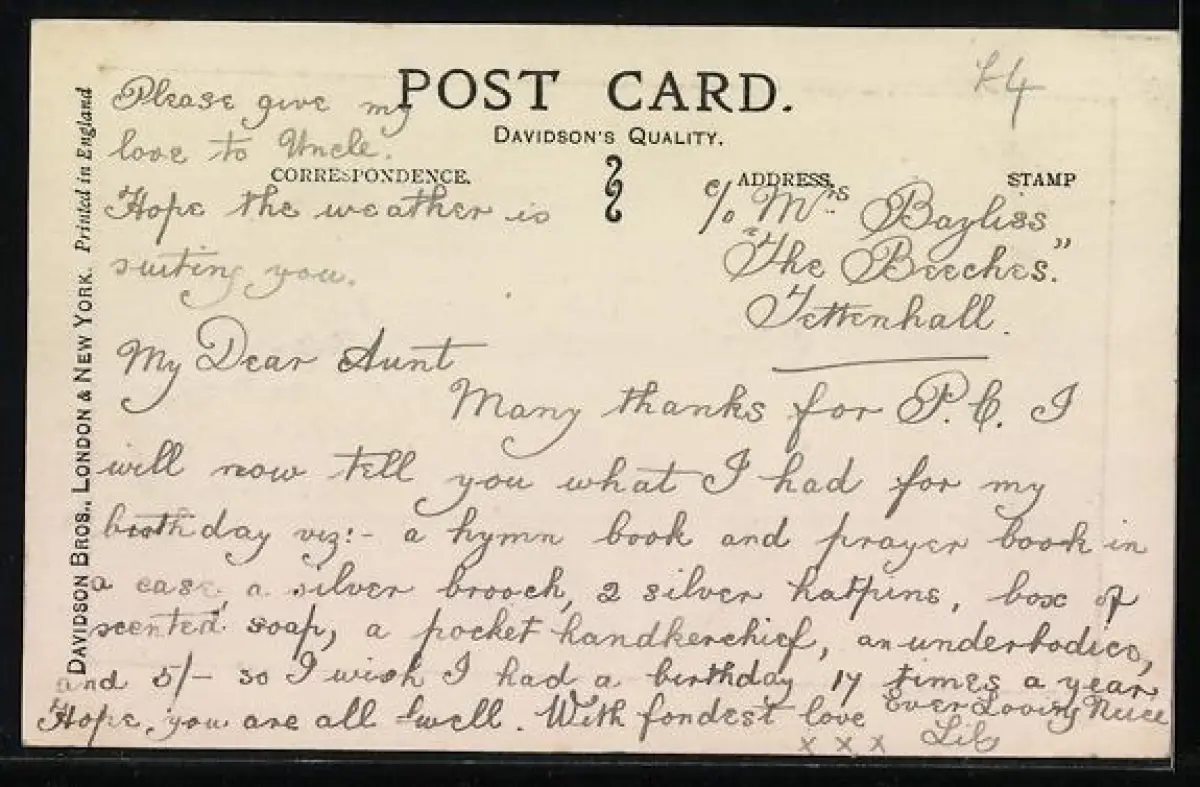 POST CARD.
DAVIDSON'S QUALITY.
k4
Please give my
love to Uncle.
CORRESPONDENCE.
ADDRESS.
STAMP
Hope the weather is
suiting you.
c/o Mrs Bayliss
"The Beeches."
Tettenhall.
My Dear Aunt
Many thanks for P.C. I
will now tell you what I had for my
birthday viz:- a hymn book and prayer book in
a case, a silver brooch, 2 silver hatpins, box of
scented soap, a pocket handkerchief, an underbodice,
and 5/- so I wish I had a birthday 17 times a year
Hope, you are all well. With fondest love
Ever Loving Niece
x x x Lily
DAVIDSON BROS., LONDON & NEW YORK. Printed in England